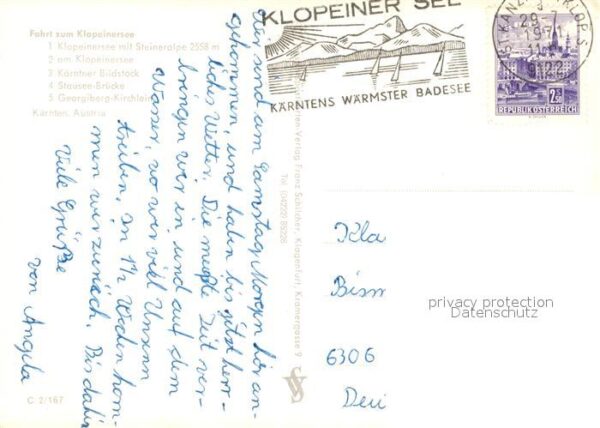 Fahrt zum Klopeinersee
1 Klopeinersee mit Steineralpe 2558 m
2 am Klopeinersee
3 Kärntner Bildstock
4 Stausee-Brücke
5 Georgiberg-Kirchlein
Kärnten, Austria
KLOPEINER SEE
KÄRNTENS WÄRMSTER BADESEE
29.
11
9122
2.50
REPUBLIK ÖSTERREICH
Wir sind am Samstag Morgen hier an-
gekommen, und haben bis jetzt herr-
liches Wetter. Die meiste Zeit ver-
bringen wir in und auf dem
Wasser, wo wir viel Unsinn
treiben. In 1½ Wochen kom-
men wir zurück. Bis dahin
Viele Grüße
von Angela
Verlag Franz Schilcher, Klagenfurt, Kramergasse 9
Tel. (04222) 88226
Kla
Bism
6306
privacy protection
Datenschutz
C 2/167